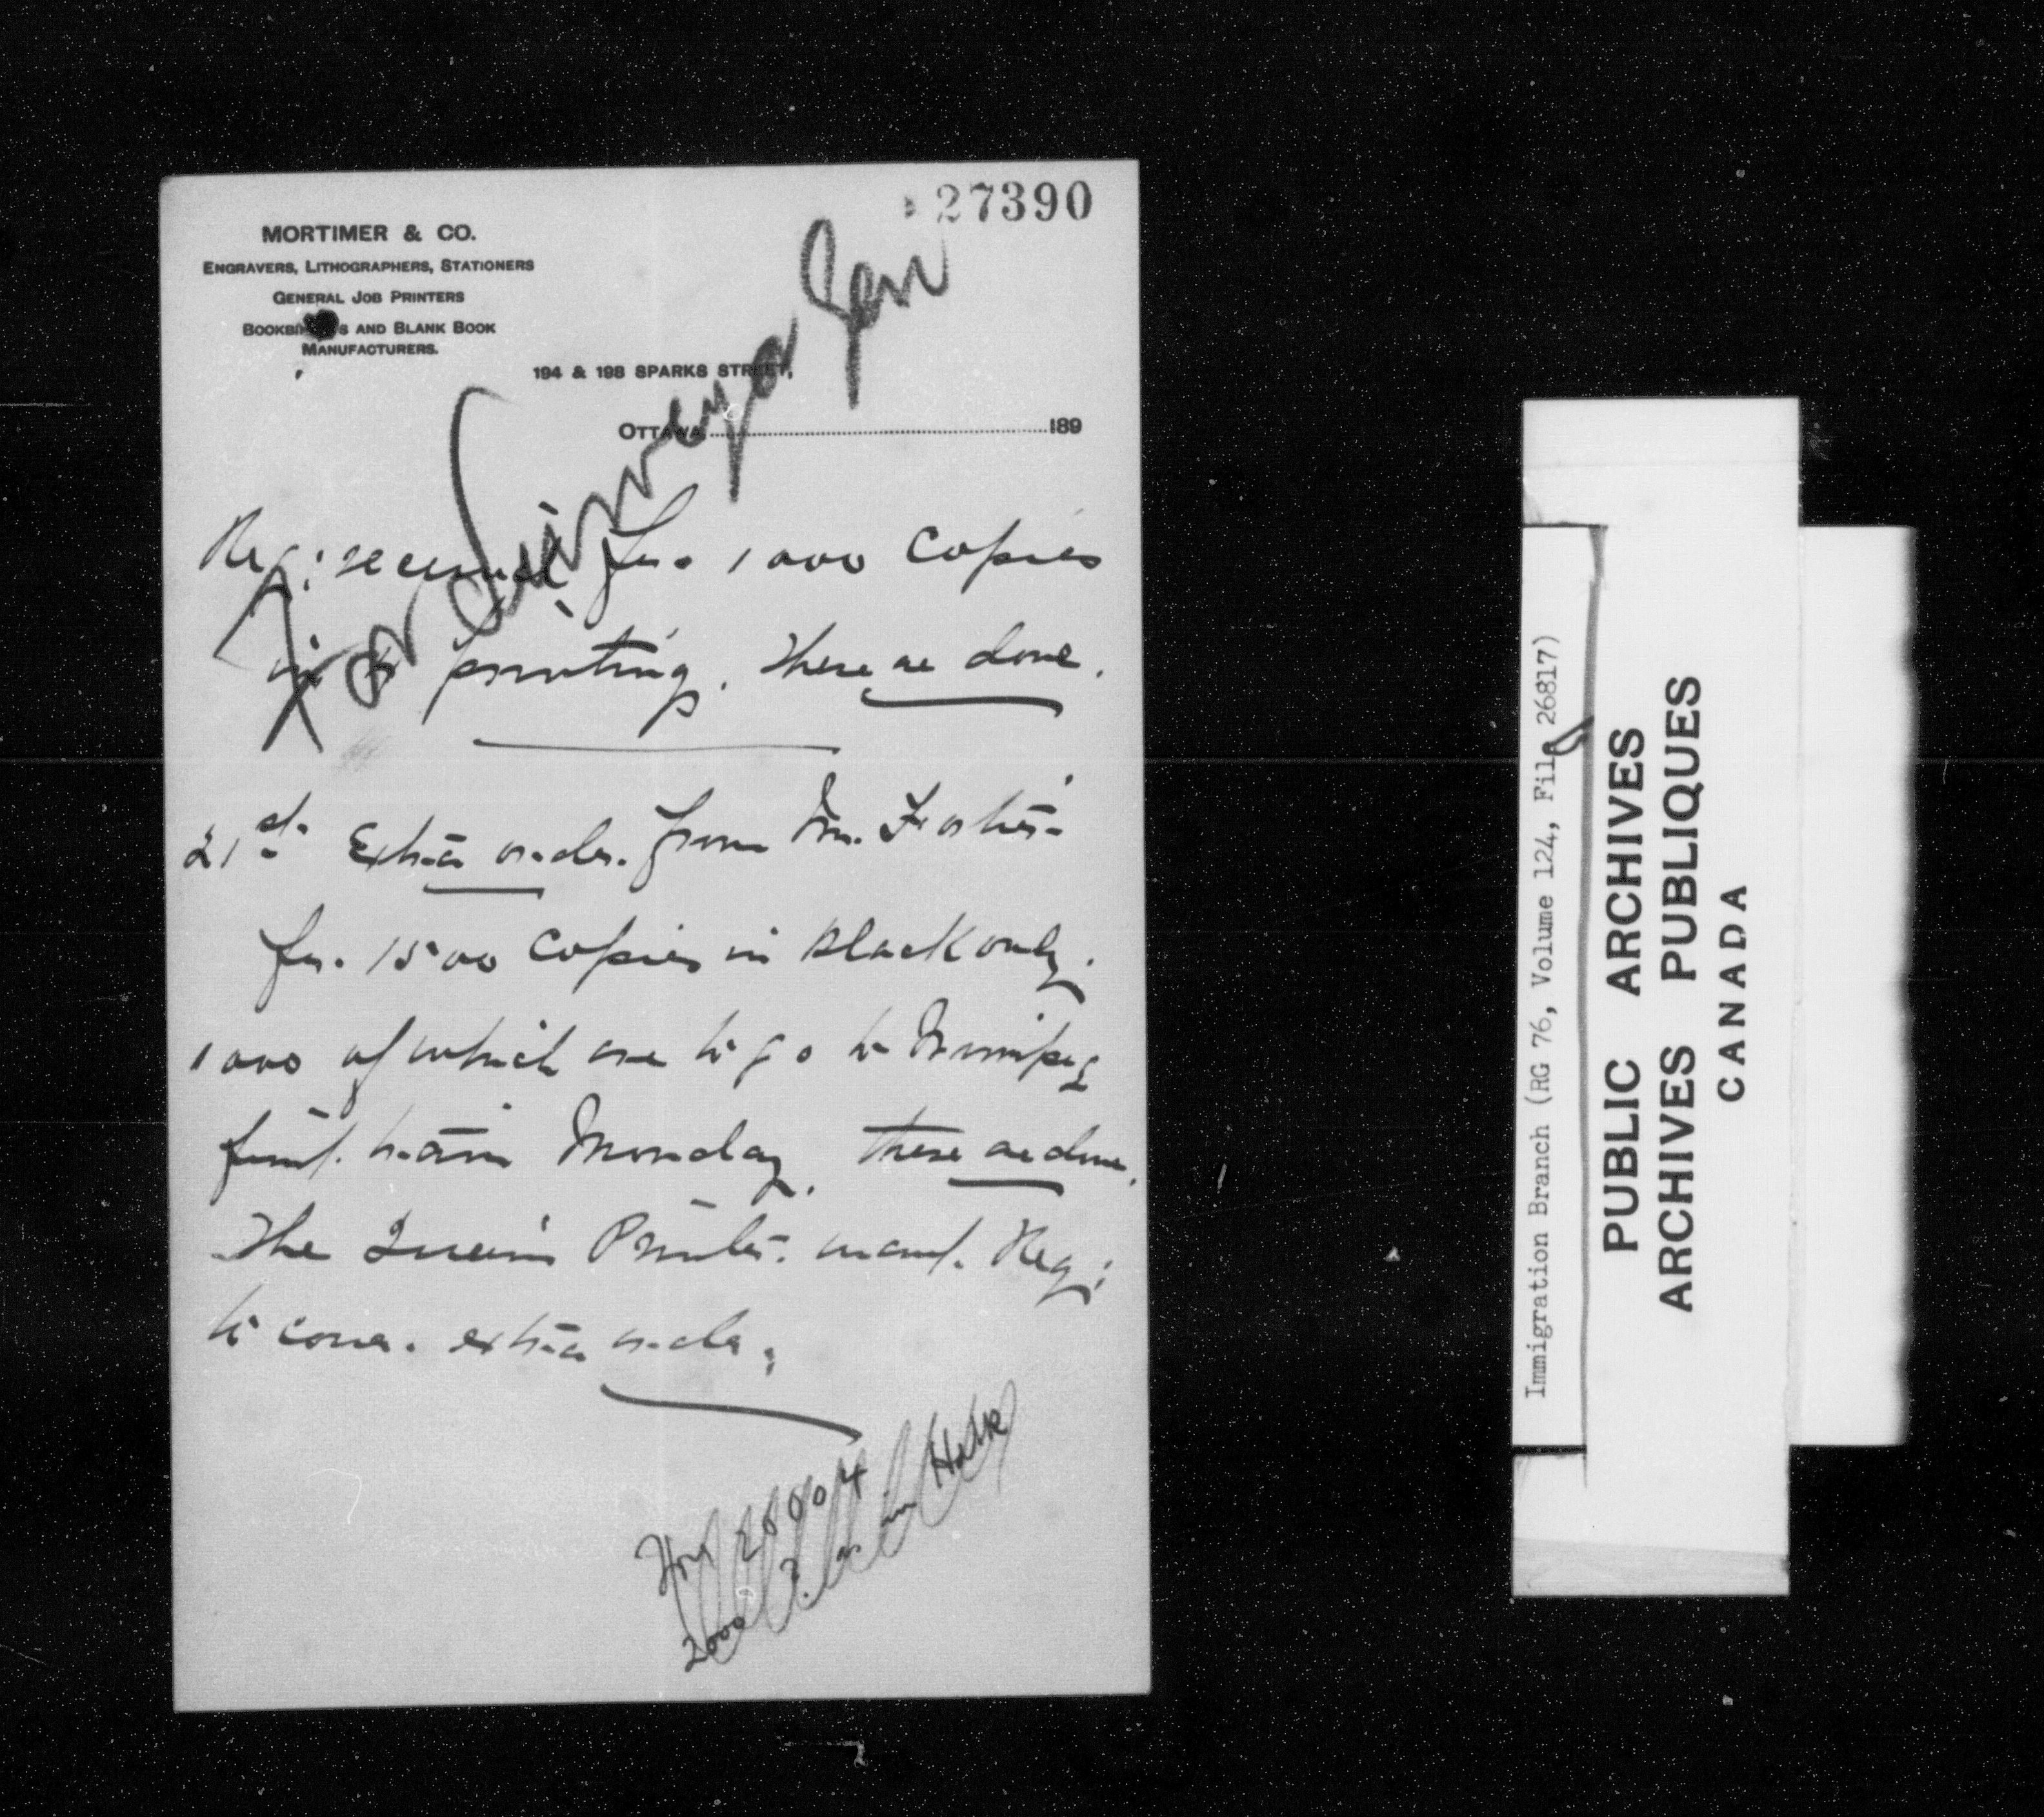 27390
MORTIMER & CO.
ENGRAVERS, LITHOGRAPHERS, STATIONERS
GENERAL JOB PRINTERS
BOOKBINDERS AND BLANK BOOK
MANUFACTURERS.
194 & 198 SPARKS STREET,
OTTAWA 189
For Gen
Req: received for 1000 copies
printing. These are done.
21st Extra order from Mr.
for 1500 copies in black only.
1000 of which are to go to Winnipeg
first train Monday. These are done.
The Queen's Printer want Req:
to cover extra order.
2000 in
Immigration Branch (RG 76, Volume 124, File 26817)
PUBLIC ARCHIVES
ARCHIVES PUBLIQUES
CANADA